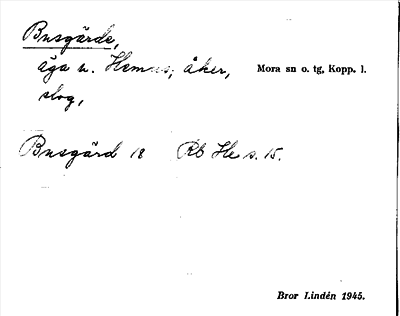 Busgärde,
äga n. Hemus; åker, Mora sn o. tg, Kopp. l.
slog,
Busgärd 18 Rb He s. 15.
Bror Lindén 1945.